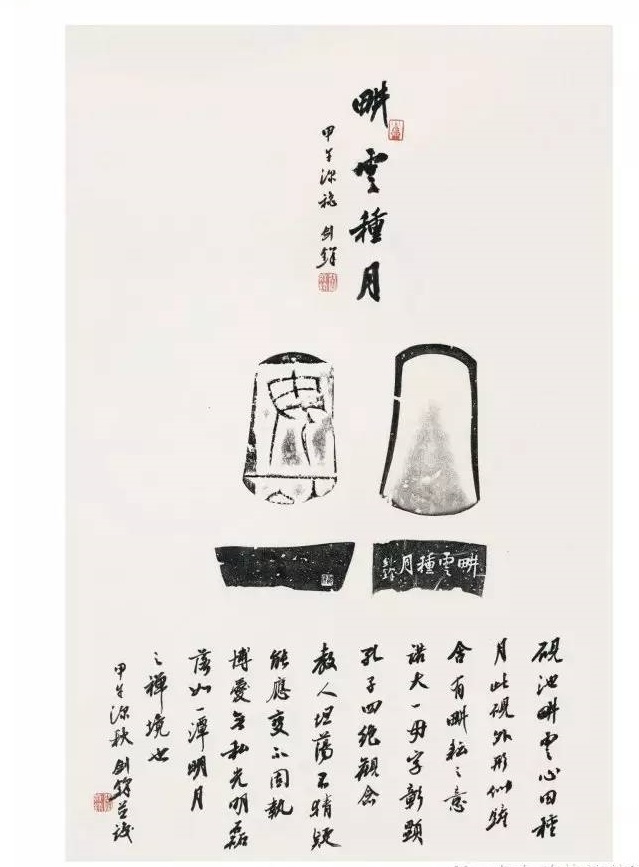 畊雲種月
甲午深秋
畊雲種月
硯池畊雲心田種
月此硯外形似鏟
含有畊耘之意
諾大一毋字彰顯
孔子四絕觀念
教人坦蕩不猜疑
能應變不固執
博愛无私光明磊
落如一潭明月
之禪境也
甲午深秋